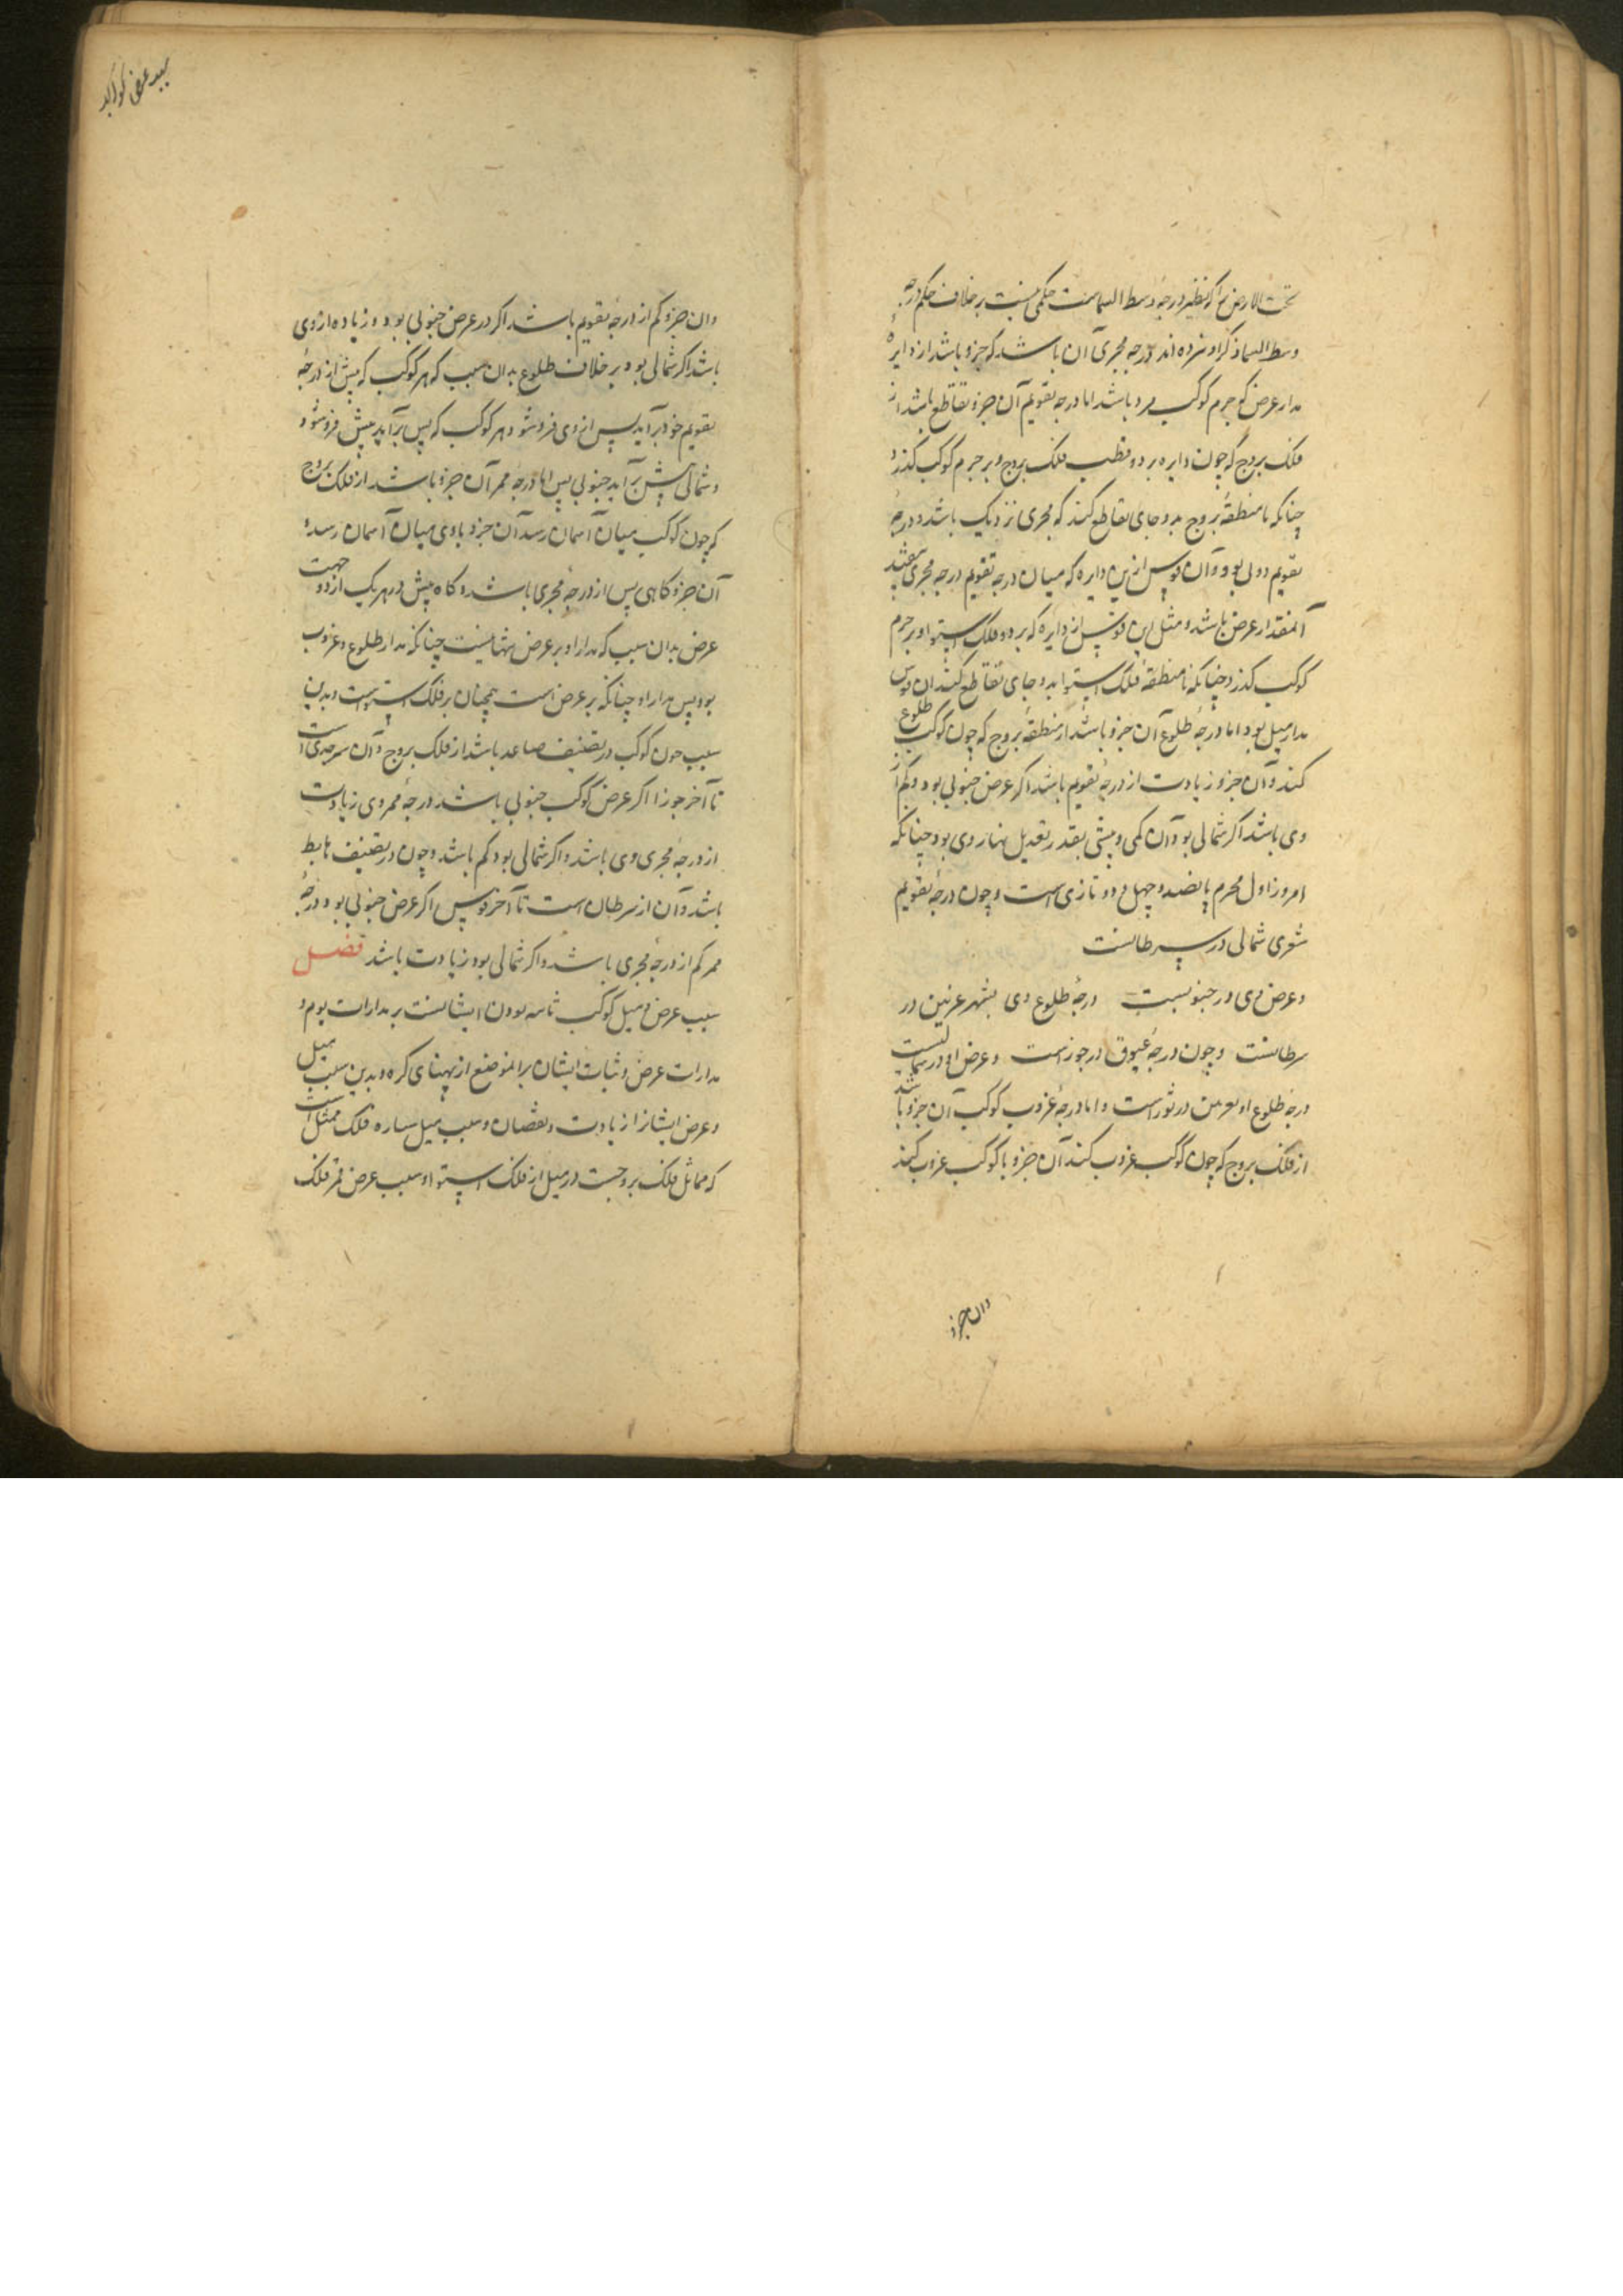 تحت الارض را که نظیر درجهٔ وسط السماست حکمی نیست بر خلاف حکم درجه
وسط السما ذکر او نزده اند درجه مجری آن باشد که جزو باشد از دایره
مدار عرض که جرم کوکب برو باشد اما درجه تقویم آن جزو تقاطع باشد از
فلک بروج که چون دایره بر دو قطب فلک بروج و بر جرم کوکب گذرد
چنانکه با منطقهٔ بروج بدو جای تقاطع کند که مجری نزدیک باشد و درجهٔ
تقویم دولی بود و آن قوس ازین دایره که میان درجه تقویم درجه مجری
آنمقدار عرض باشد و مثل این قوس از دایره که بر دو فلک استوا و بر جرم
کوکب گذرد چنانکه با منطقهٔ فلک استوا بدو جای تقاطع کند ان قوس
مدار میل بود اما درجهٔ طلوع آن جزو باشد از منطقهٔ بروج که چون کوکب طلوع
کند و آن جزو زیادت از درجهٔ تقویم باشد اگر عرض جنوبی بود و کم از
وی باشد اگر شمالی بود و آن کمی و بیشی بقدر تعدیل نهار وی بود چنانکه
امروز اول محرم پانصد و چهل و دو تازی است و چون درجهٔ تقویم
شعری شمالی در سرطانست
و عرض وی در جنوبست درجهٔ طلوع وی بشهر غزنین در
سرطانست و چون درجهٔ عیوق در جوزاست و عرض او در شمالیست
درجهٔ طلوع او در ثور است و اما درجهٔ غروب کوکب آن جزو باشد
از فلک بروج که چون کوکب غروب کند آن جزو با کوکب غروب کند
وان جزو
سبب عرض کواکب
وان جزو کم از درجهٔ تقویم باشد اگر در عرض جنوبی بود و زیاده از وی
باشد اگر شمالی بود بر خلاف طلوع بدان سبب که هر کوکب که پیش از درجهٔ
تقویم خود برآید پس از وی فرو شود هر کوکب که پس برآید پیش فرو شود
و شمالی پیش برآید جنوبی پس اما درجهٔ ممر آن جزو باشد از فلک بروج
که چون کوکب میان آسمان رسد آن جزو با وی میان آسمان رسد و
آن جزو گاهی پس از درجهٔ مجری باشد و گاه پیش در هر یک از دو جهت
عرض بدان سبب که مدار او بر عرض نیست چنانکه مدار طلوع و غروب
بود پس مدار او چنانکه بر عرض است همچنان بر فلک استواست و بدین
سبب چون کوکب در تصنیف صاعد باشد از فلک بروج و آن سر جدی است
تا آخر جوزا اگر عرض کوکب جنوبی باشد درجهٔ ممر وی زیادت
از درجهٔ مجری وی باشد و اگر شمالی بود کم باشد و چون در تصنیف هابط
باشد و آن از سرطان است تا آخر قوس اگر عرض جنوبی بود درجهٔ
ممر کم از درجهٔ مجری باشد و اگر شمالی بود زیادت باشد فصل
سبب عرض و میل کوکب ثابته بودن ایشانست بر مدارات یوم و
مدارات عرض و ثبات ایشان برانموضع از پهنای کره و بدین سبب میل
و عرض ایشانرا زیادت و نقصان و سبب میل سیاره فلک ممثل است
که مماثل فلک بروجست در میل از فلک استوا و سبب عرض قمر فلک